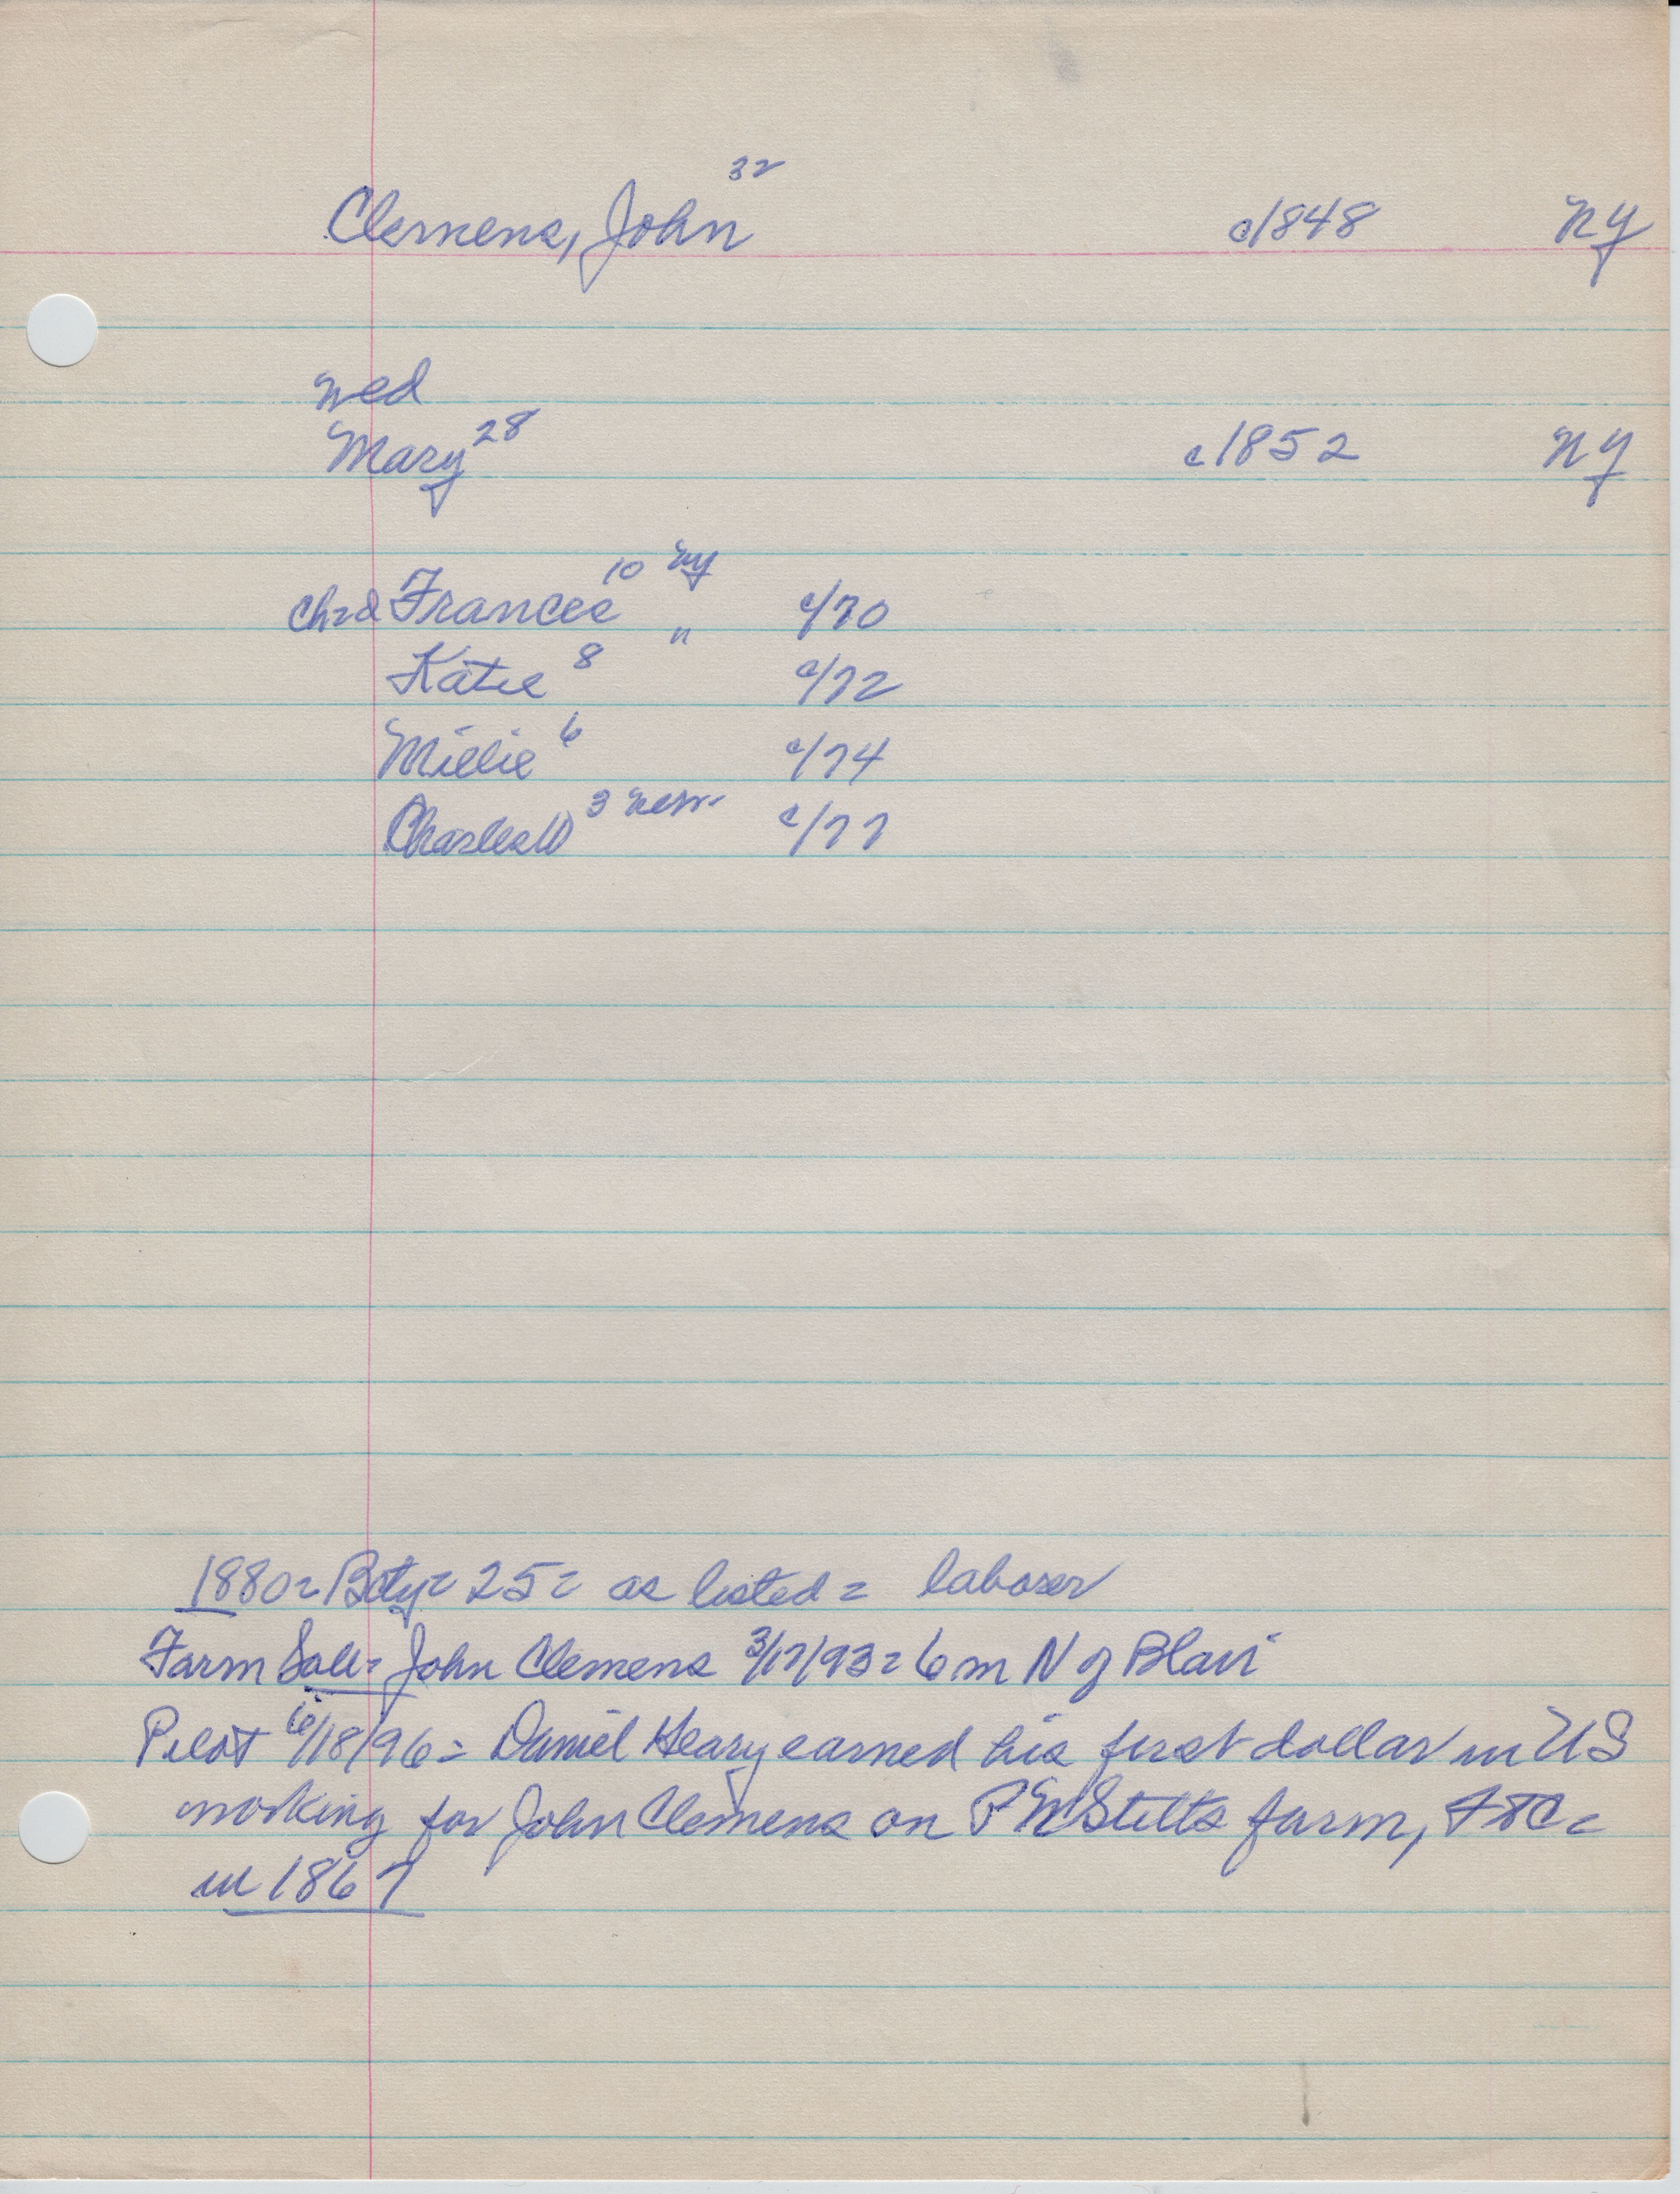 Clemens, John 32 c1848 NY
wed
Mary 28 c1852 NY
Chrd Frances 10 NY c/70
Katie 8 " c/72
Millie 6 c/74
Charles W 3 Nebr c/77
1880= Bcty= 25= as listed= laborer
Farm Sale= John Clemens 3/17/93= 6 m N of Blair
Pilot 6/18/96= Daniel Heary earned his first dollar in US
working for John Clemens on P Stilts farm, FtC=
in 1867